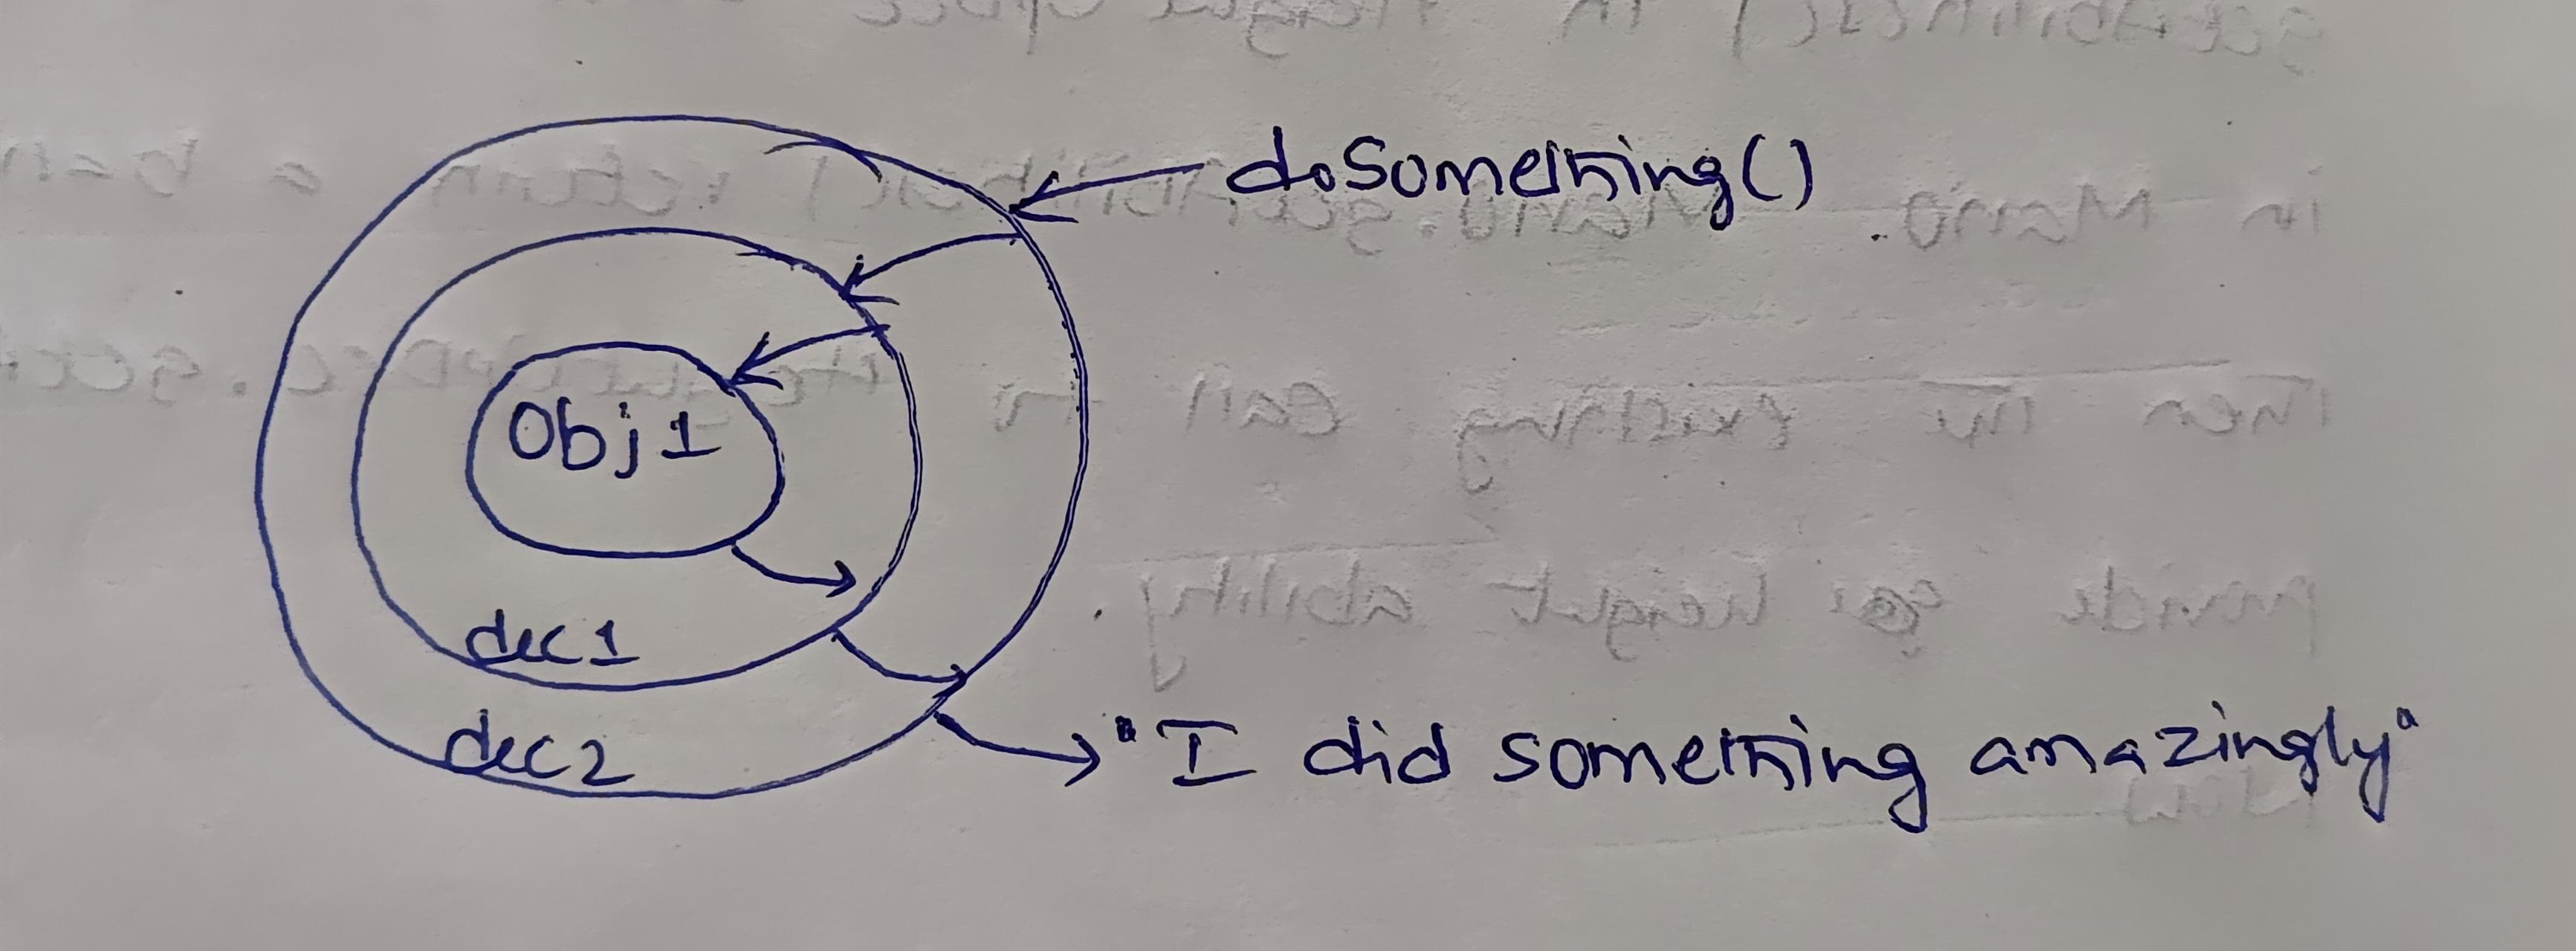 doSomething()
Obj1
dec1
dec2
"I did something amazingly"